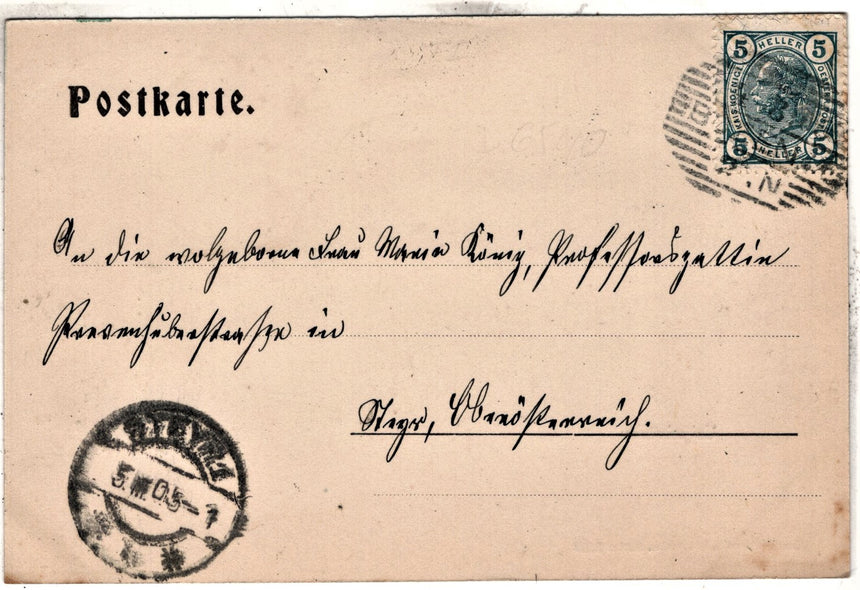 Postkarte.
5 HELLER 5
5 HELLER 5
An die wolgeborne Frau Maria König, Professorsgattin
Preuenhuberstraße in
Steyr, Oberösterreich.
5. III. 05 - 7